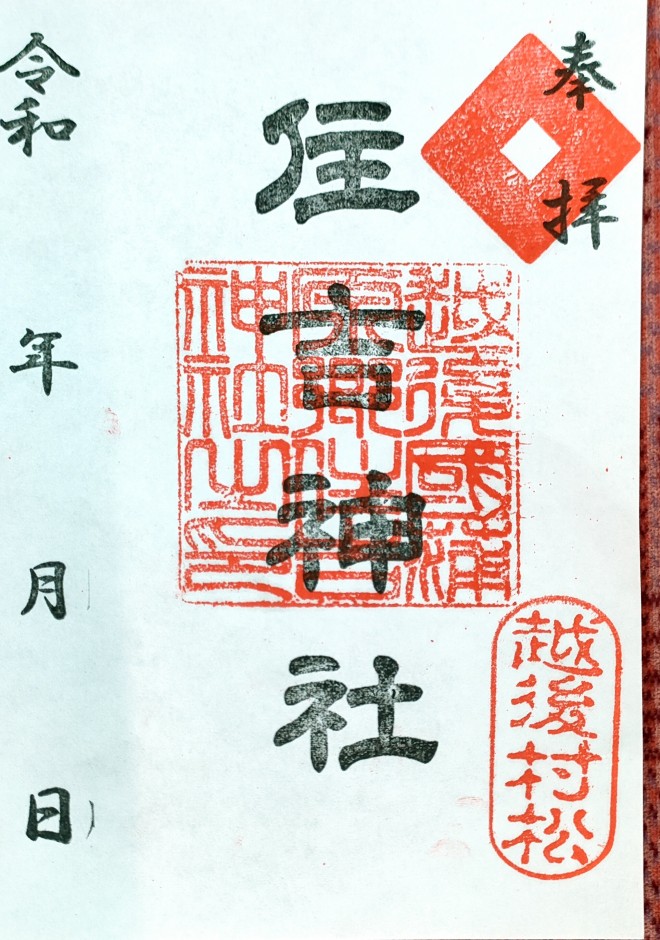 奉拝
越後村松
越後國蒲
原郷住吉
神社之印
住吉神社
令和 年 月 日